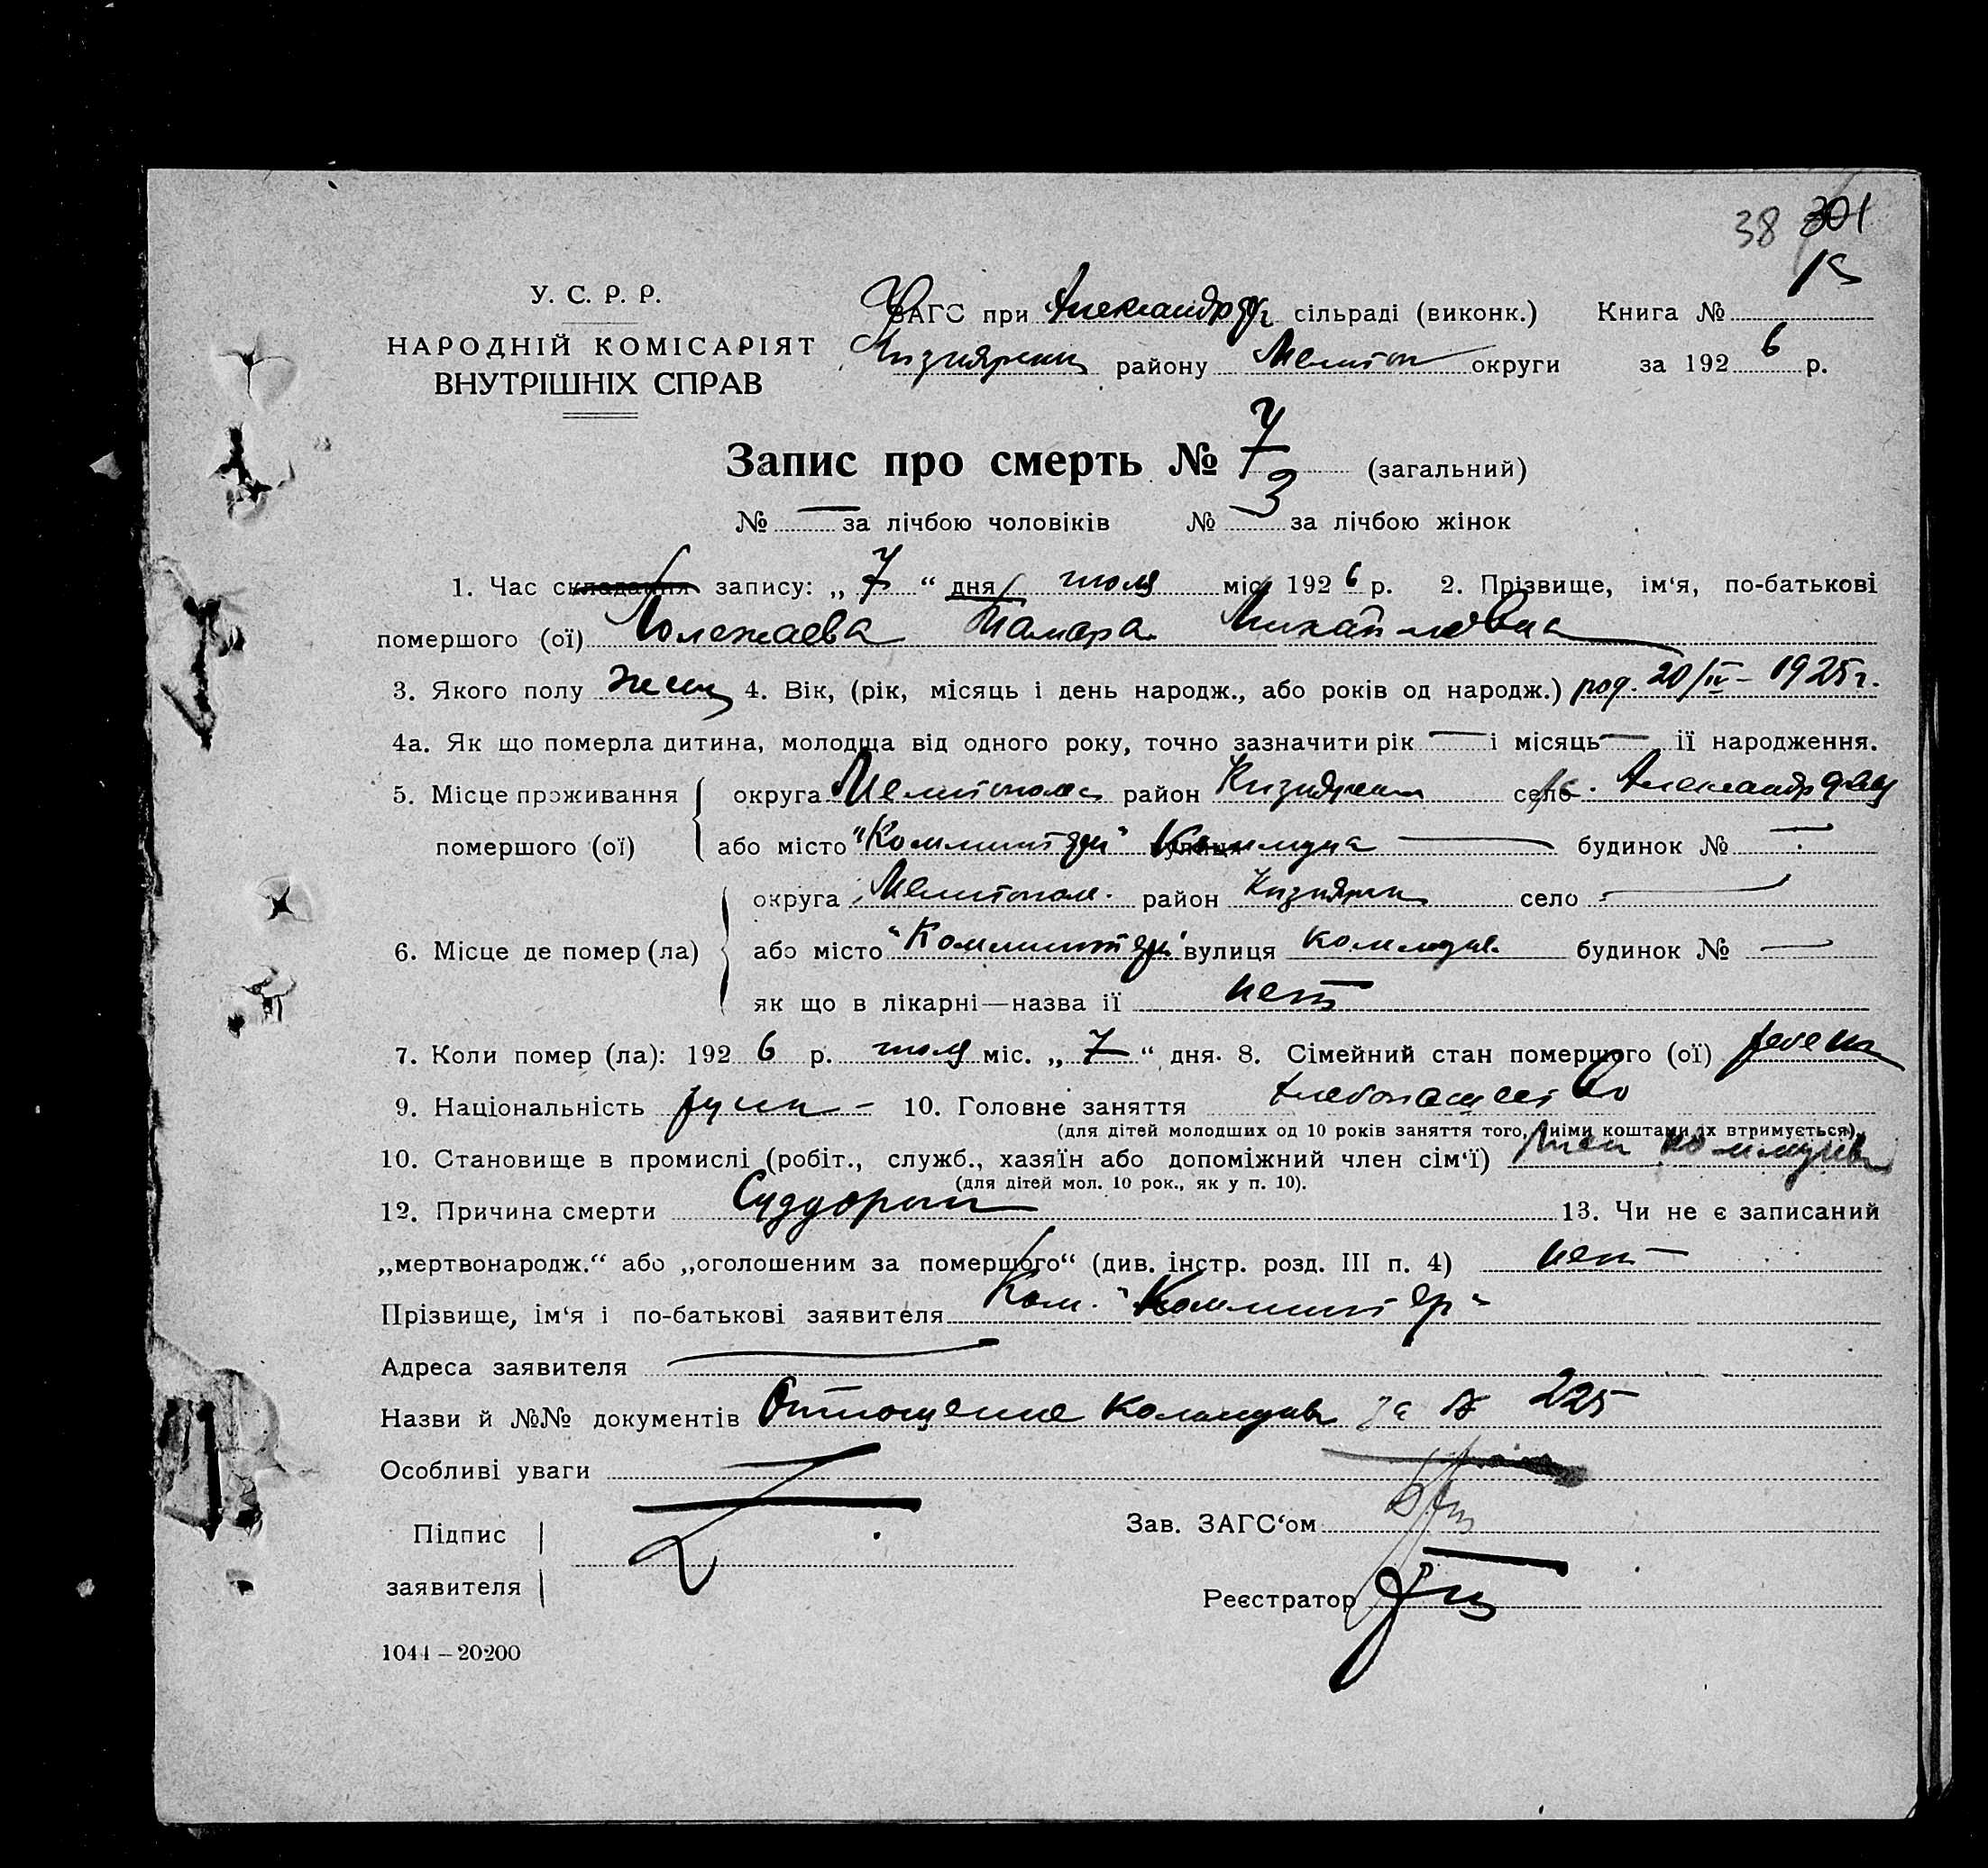 38 301
15
У. С. Р. Р.
НАРОДНІЙ КОМІСАРІЯТ
ВНУТРІШНІХ СПРАВ
ЗАГС при Александр сільраді (виконк.) Книга №
Кизиярск району Мелитоп округи за 1926 р.
Запис про смерть № 7 (загальний)
№ — за лічбою чоловіків № 3 за лічбою жінок
1. Час складання запису: „7“ дня июля міс. 1926 р. 2. Прізвище, ім‘я, по-батькові
помершого (ої) Полежаева Тамара Михайловна
3. Якого полу женс 4. Вік, (рік, місяць і день народж., або років од народж.) род. 20/IV – 1925 г.
4а. Як що померла дитина, молодща від одного року, точно зазначити рік — і місяць — її народження.
5. Місце проживання округа Мелитопол район Кизиярск село Александр
помершого (ої) або місто "Коминтерн" Коммуна — будинок № —
округа Мелитопол. район Кизиярск село —
6. Місце де помер (ла) або місто "Коминтерн" вулиця коммуна будинок № —
як що в лікарні—назва її нет
7. Коли помер (ла): 1926 р. июля міс. „7“ дня. 8. Сімейний стан помершого (ої) ребенок
9. Національність русск – 10. Головне заняття хлебопашество
(для дітей молодших од 10 років заняття того, чиїми коштами їх втримується).
10. Становище в промислі (робіт., служб., хазяїн або допоміжний член сім‘ї) член коммуны
(для дітей мол. 10 рок., як у п. 10).
12. Причина смерти Суддороги 13. Чи не є записаний
„мертвонародж.“ або „оголошеним за помершого“ (див. інстр. розд. III п. 4) нет —
Прізвище, ім‘я і по-батькові заявителя Ком. "Коминтерн"
Адреса заявителя —
Назви й №№ документів Отношение Коммуны за № 225
Особливі уваги
Підпис
заявителя
Зав. ЗАГС‘ом
Реєстратор
1044 – 20200